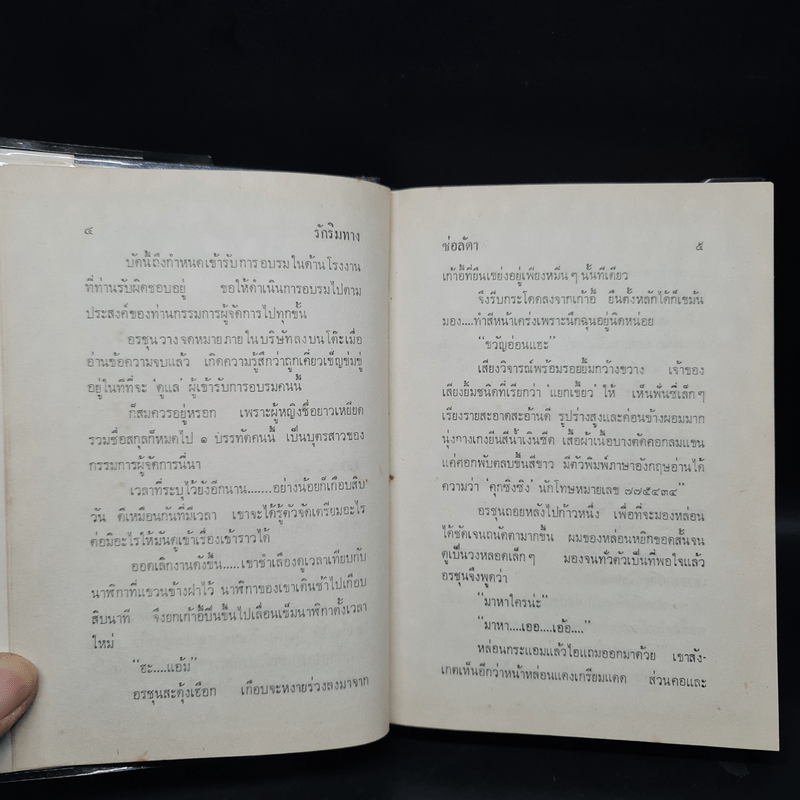 ๔ รักริมทาง
บัดนี้ถึงกำหนดเข้ารับการอบรมในด้านโรงงาน
ที่ท่านรับผิดชอบอยู่ ขอให้ดำเนินการอบรมไปตาม
ประสงค์ของท่านกรรมการผู้จัดการไปทุกขั้น
อรชุนวางจดหมายภายในบริษัทลงบนโต๊ะเมื่อ
อ่านข้อความจบแล้ว เกิดความรู้สึกว่าถูกเคี่ยวเข็ญข่มขู่
อยู่ในทีที่จะ ‘ดูแล’ ผู้เข้ารับการอบรมคนนี้
ก็สมควรอยู่หรอก เพราะผู้หญิงชื่อยาวเหยียด
รวมชื่อสกุลก็หมดไป ๑ บรรทัดคนนี้ เป็นบุตรสาวของ
กรรมการผู้จัดการนี่นา
เวลาที่ระบุไว้ยังอีกนาน.......อย่างน้อยก็เกือบสิบ
วัน ดีเหมือนกันที่มีเวลา เขาจะได้รู้ตัวจัดเตรียมอะไร
ต่อมิอะไรให้มันดูเข้าเรื่องเข้าราวได้
ออดเลิกงานดังขึ้น.....เขาชำเลืองดูเวลาเทียบกับ
นาฬิกาที่แขวนข้างฝาไว้ นาฬิกาของเขาเดินช้าไปเกือบ
สิบนาที จึงยกเก้าอี้ปีนขึ้นไปเลื่อนเข็มนาฬิกาตั้งเวลา
ใหม่
“ฮะ....แอ้ม”
อรชุนสะดุ้งเฮือก เกือบจะหงายร่วงลงมาจาก
ช่อลัดา ๕
เก้าอี้ที่ยืนเขย่งอยู่เพียงหมิ่นๆ นั้นทีเดียว
จึงรีบกระโดดลงจากเก้าอี้ ยืนตั้งหลักได้ก็เขม้น
มอง....ทำสีหน้าเคร่งเพราะนึกฉุนอยู่นิดหน่อย
“ขวัญอ่อนแฮะ”
เสียงวิจารณ์พร้อมรอยยิ้มกว้างขวาง เจ้าของ
เสียงยิ้มชนิดที่เรียกว่า ‘แยกเขี้ยว’ ให้ เห็นฟันซี่เล็กๆ
เรียงรายสะอาดสะอ้านดี รูปร่างสูงและค่อนข้างผอมมาก
นุ่งกางเกงยีนสีน้ำเงินซีด เสื้อผ้าเนื้อบางตัดคอกลมแขน
แค่ศอกพับตลบขึ้นสีขาว มีตัวพิมพ์ภาษาอังกฤษอ่านได้
ความว่า ‘คุกซิงซิง’ นักโทษหมายเลข ๗๗๕๔๓๔
อรชุนถอยหลังไปก้าวหนึ่ง เพื่อที่จะมองหล่อน
ได้ชัดเจนถนัดตามากขึ้น ผมของหล่อนหยิกขอดสั้นจน
ดูเป็นวงหลอดเล็กๆ มองจนทั่วตัวเป็นที่พอใจแล้ว
อรชุนจึงพูดว่า
“มาหาใครน่ะ”
“มาหา....เออ....เอ้อ....”
หล่อนกระแอมแล้วไอแถมออกมาด้วย เขาสัง-
เกตเห็นอีกว่าหน้าหล่อนแดงเกรียมแดด ส่วนคอและ